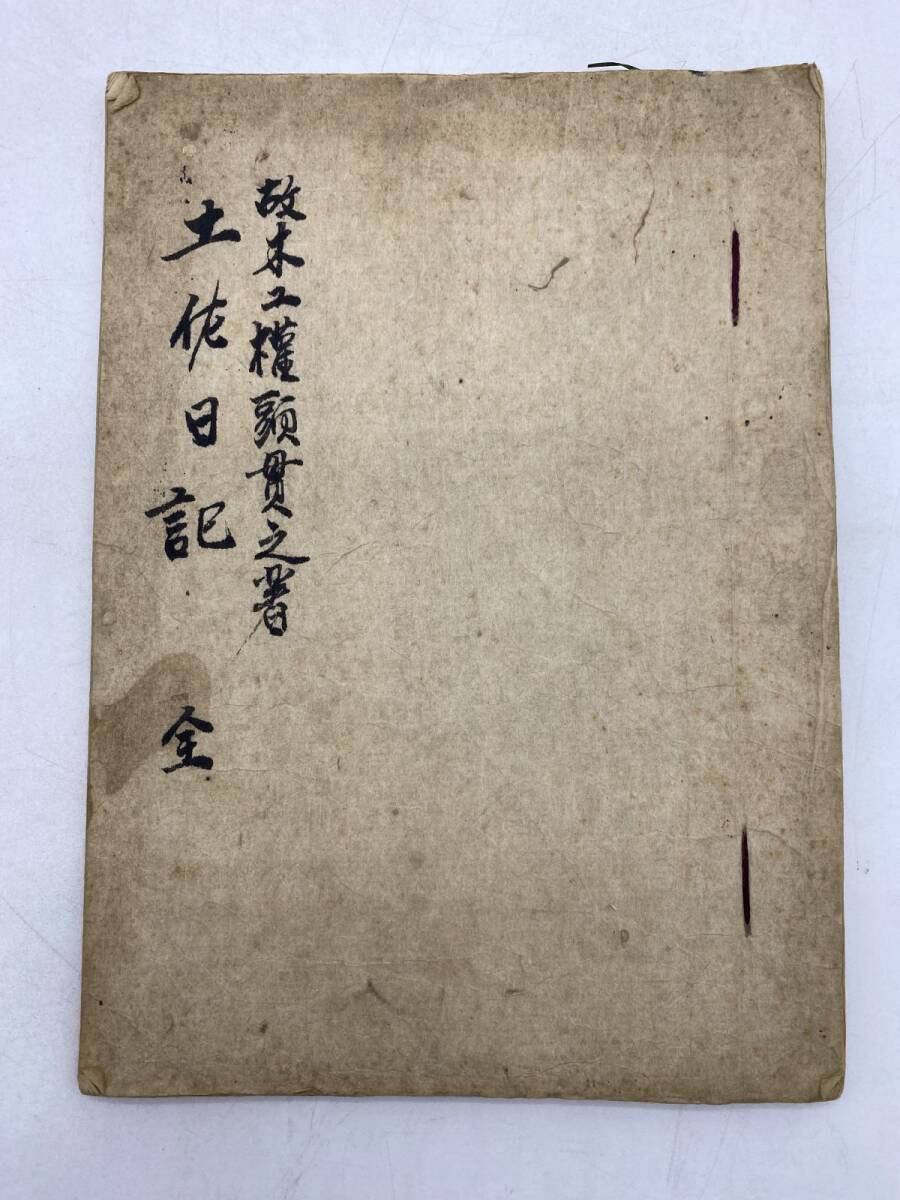 故木工權頭貫之著
土佐日記 全